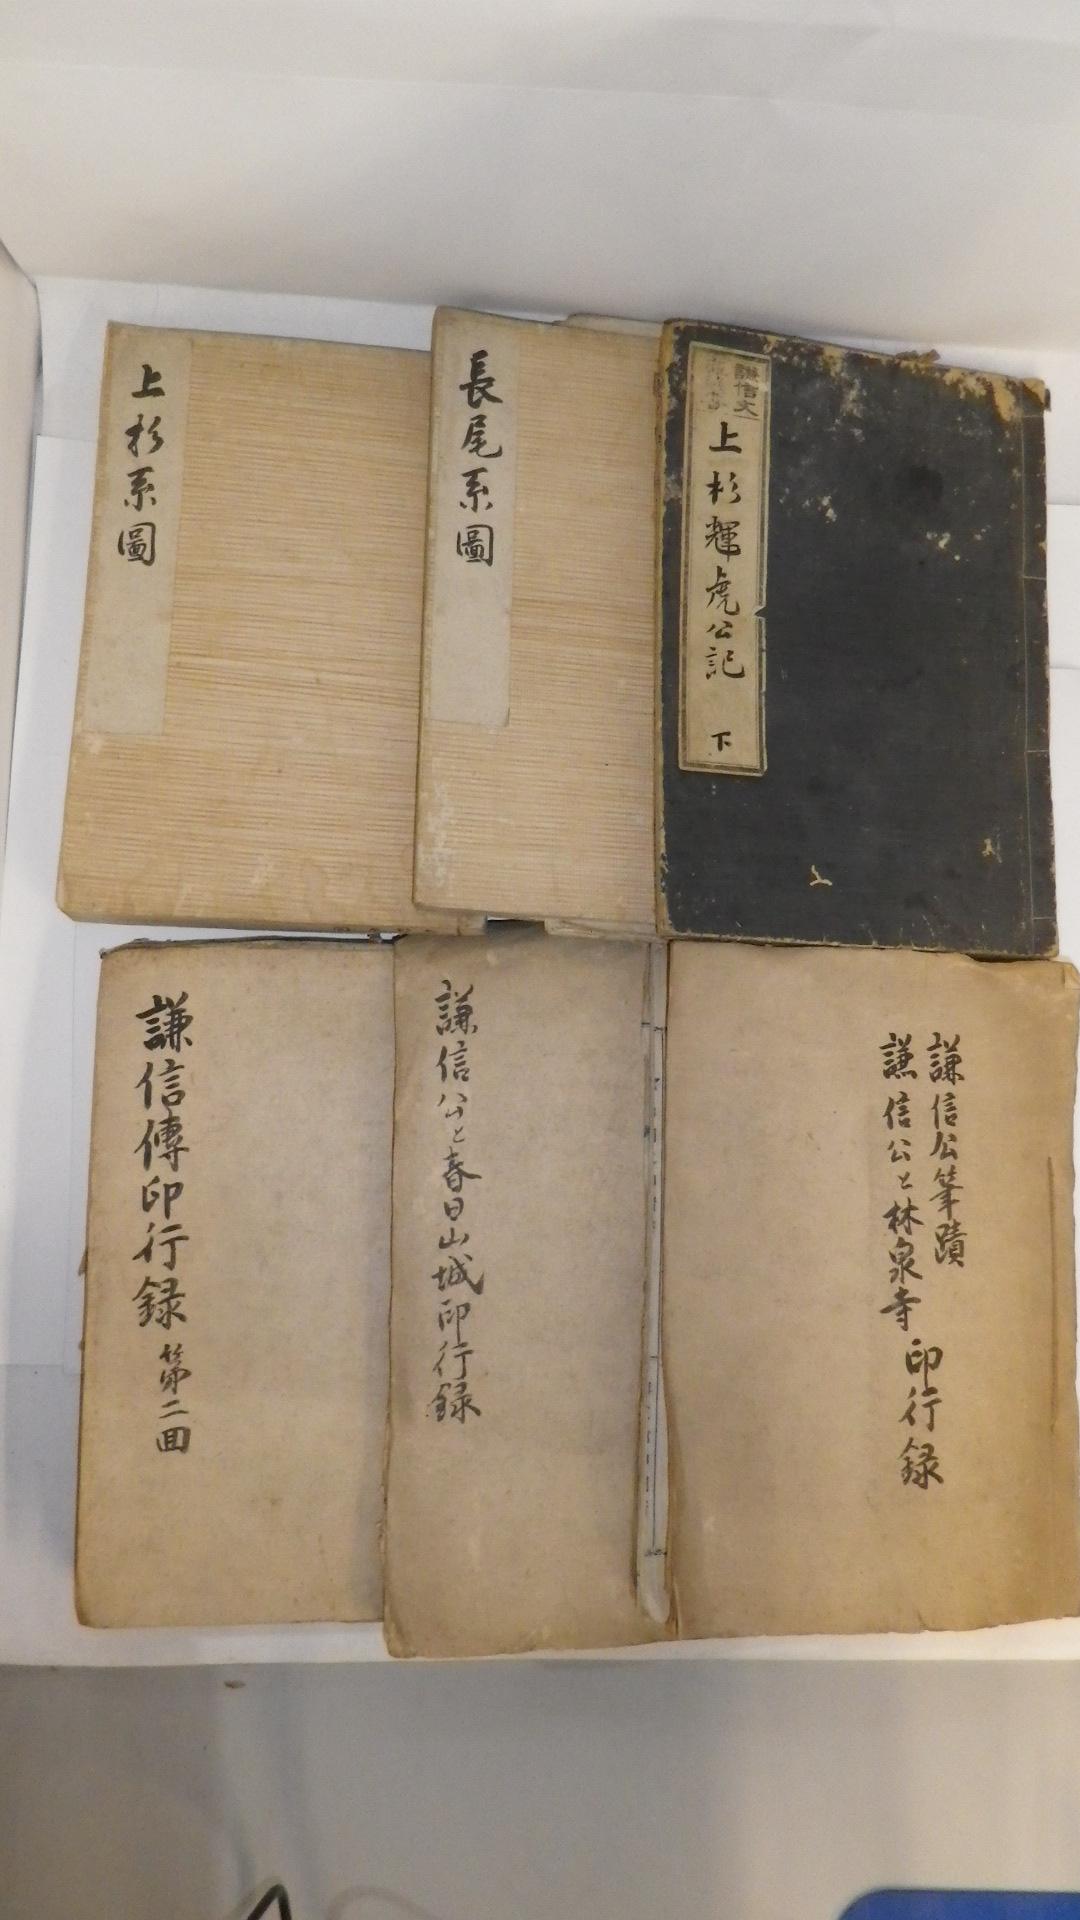 上杉系圖
長尾系圖
謙信文
上杉輝虎公記 下
謙信傳印行録 第二回
謙信公と春日山城印行録
謙信公筆蹟
謙信公と林泉寺
印行録